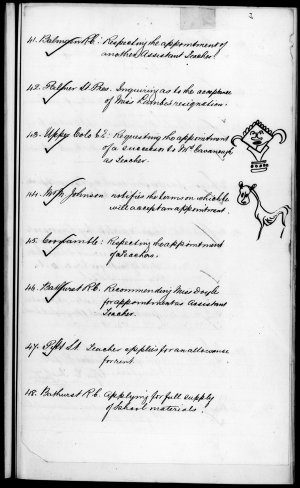 2
41. Balmain R.C: Respecting the appointment of
another Assistant Teacher.
42. Pitt St Pres. Inquiring as to the acceptance
of Miss resignation.
43. Upper Colo C.E: Requesting the appointment
of a successor to Mr Cavanough
as Teacher.
44. Wm Johnson notifies the terms on which he
will accept an appointment.
45. Coonamble: Respecting the appointment
of a Teacher.
46. Bathurst R.C. Recommending Miss Doyle
for appointment as Assistant
Teacher.
47. Pitt St. Teacher applies for an allowance
for rent.
48. Bathurst R.C. Applying for full supply
of School materials.